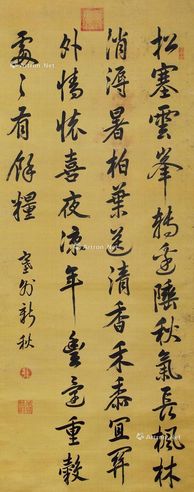 松塞雲峯轉秋氣長楓林
消溽暑柏葉送清香禾黍宜關
外情懷喜夜涼年豐重穀
處〻有餘糧
塞外新秋
Artron.Net